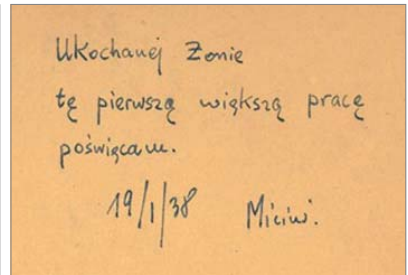 Ukochanej Żonie
tę pierwszą większą pracę
poświęcam.
19/I/38 Miciuś.